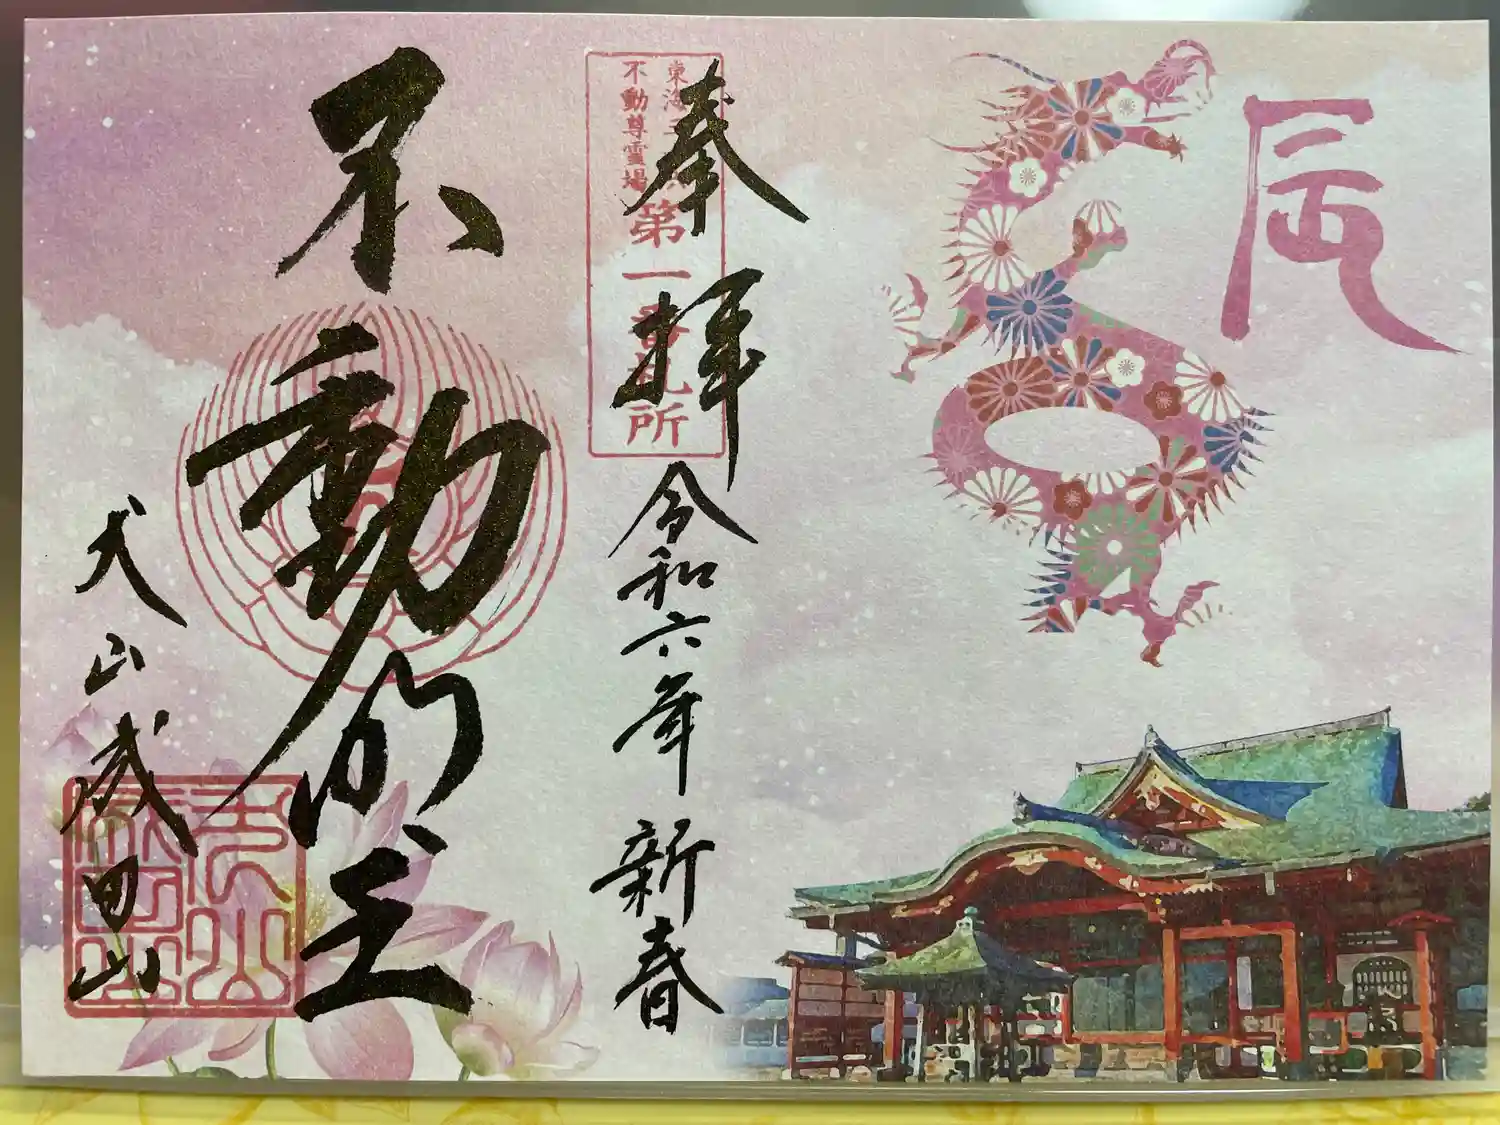 辰
奉拝
東海三十六
不動尊霊場
第一番札所
令和六年 新春
不動明王
犬山成田山